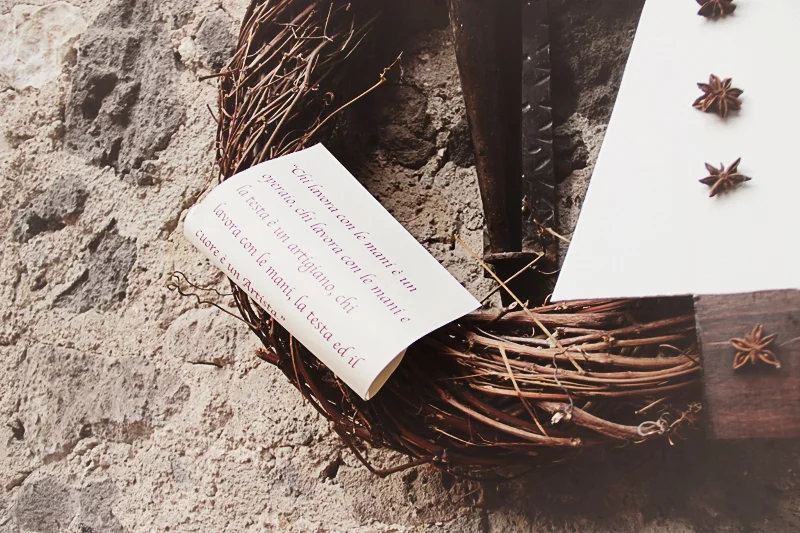 "Chi lavora con le mani è un
operaio, chi lavora con le mani e
la testa è un artigiano, chi
lavora con le mani, la testa ed il
cuore è un Artista."